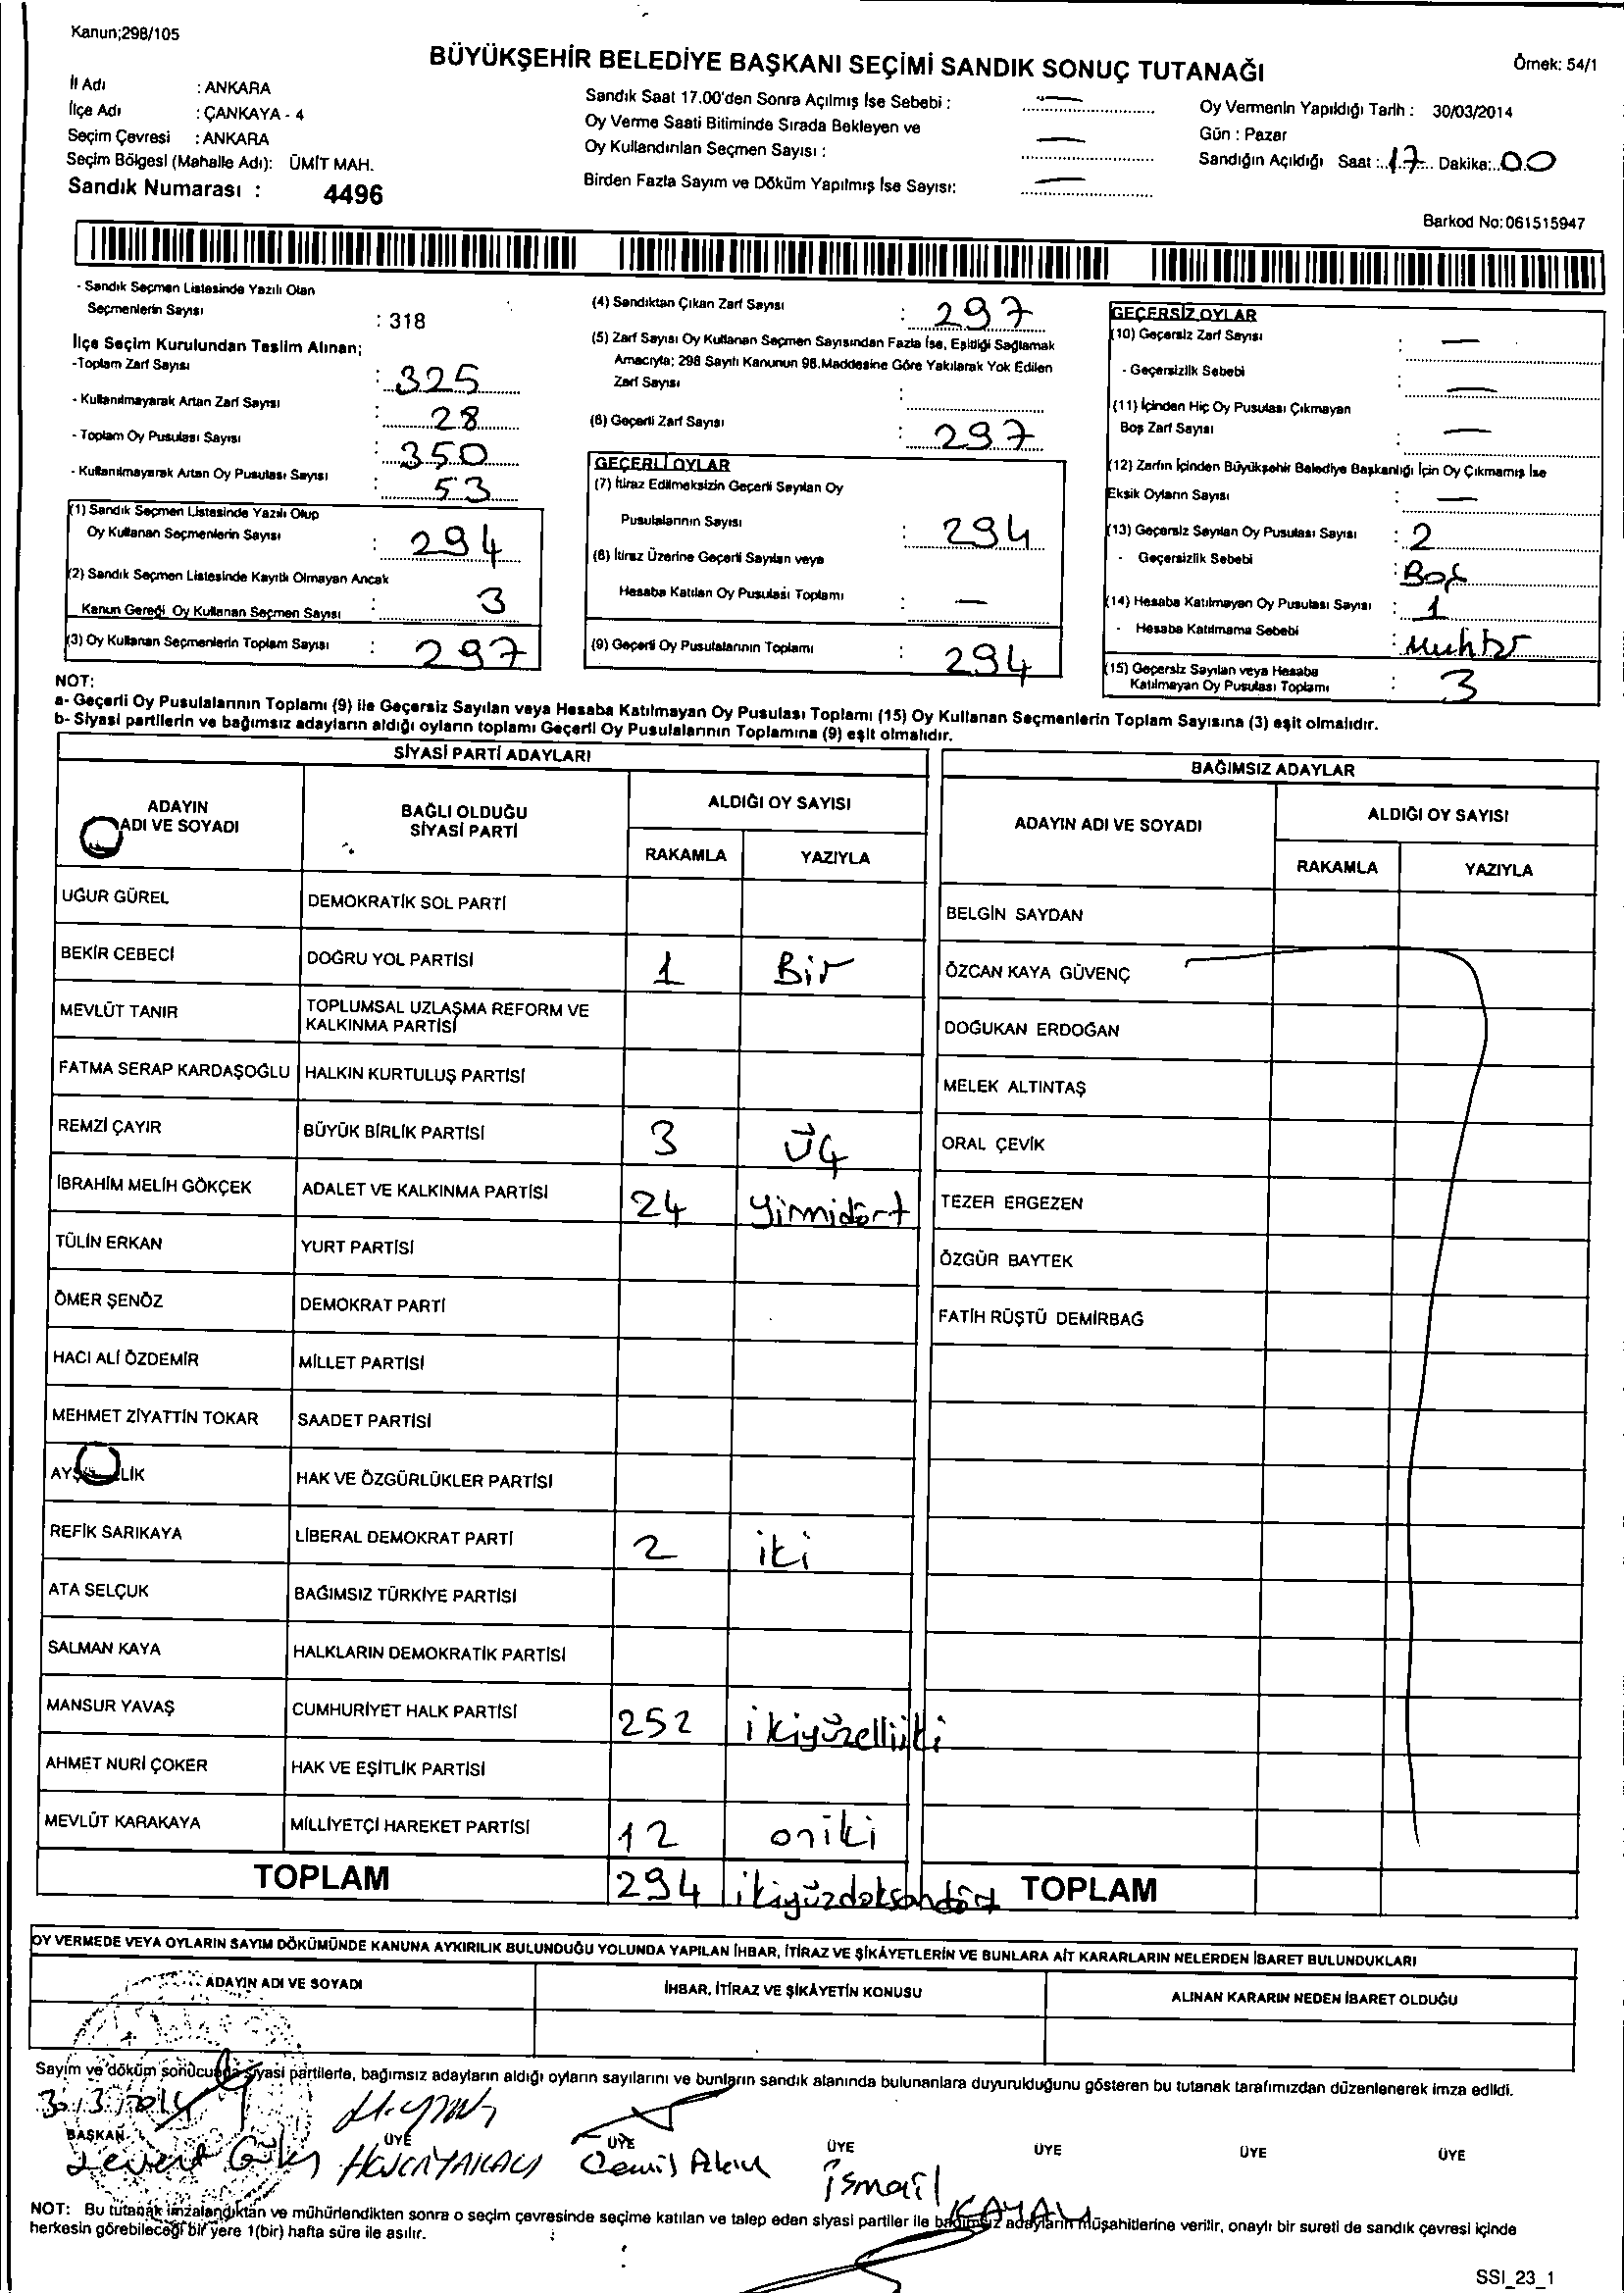 Kanun;298/105
BÜYÜKŞEHİR BELEDİYE BAŞKANI SEÇİMİ SANDIK SONUÇ TUTANAĞI
Örnek: 54/1
İl Adı : ANKARA
İlçe Adı : ÇANKAYA - 4
Seçim Çevresi : ANKARA
Seçim Bölgesi (Mahalle Adı): ÜMİT MAH.
Sandık Numarası : 4496
Sandık Saat 17.00'den Sonra Açılmış İse Sebebi : —
Oy Verme Saati Bitiminde Sırada Bekleyen ve
Oy Kullandırılan Seçmen Sayısı : —
Birden Fazla Sayım ve Döküm Yapılmış İse Sayısı: —
Oy Vermenin Yapıldığı Tarih : 30/03/2014
Gün : Pazar
Sandığın Açıldığı Saat : 17 Dakika: 00
Barkod No: 061515947
- Sandık Seçmen Listesinde Yazılı Olan
Seçmenlerin Sayısı : 318
İlçe Seçim Kurulundan Teslim Alınan;
-Toplam Zarf Sayısı : 325
- Kullanılmayarak Artan Zarf Sayısı : 28
- Toplam Oy Pusulası Sayısı : 350
- Kullanılmayarak Artan Oy Pusulası Sayısı : 53
(1) Sandık Seçmen Listesinde Yazılı Olup
Oy Kullanan Seçmenlerin Sayısı : 294
(2) Sandık Seçmen Listesinde Kayıtlı Olmayan Ancak
Kanun Gereği Oy Kullanan Seçmen Sayısı : 3
(3) Oy Kullanan Seçmenlerin Toplam Sayısı : 297
(4) Sandıktan Çıkan Zarf Sayısı : 297
(5) Zarf Sayısı Oy Kullanan Seçmen Sayısından Fazla İse, Eşitliği Sağlamak
Amacıyla; 298 Sayılı Kanunun 98.Maddesine Göre Yakılarak Yok Edilen
Zarf Sayısı :
(6) Geçerli Zarf Sayısı : 297
GEÇERLİ OYLAR
(7) İtiraz Edilmeksizin Geçerli Sayılan Oy
Pusulalarının Sayısı : 294
(8) İtiraz Üzerine Geçerli Sayılan veya
Hesaba Katılan Oy Pusulası Toplamı : —
(9) Geçerli Oy Pusulalarının Toplamı : 294
GEÇERSİZ OYLAR
(10) Geçersiz Zarf Sayısı : —
- Geçersizlik Sebebi : —
(11) İçinden Hiç Oy Pusulası Çıkmayan
Boş Zarf Sayısı : —
(12) Zarfın İçinden Büyükşehir Belediye Başkanlığı İçin Oy Çıkmamış İse
Eksik Oyların Sayısı : —
(13) Geçersiz Sayılan Oy Pusulası Sayısı : 2
- Geçersizlik Sebebi : Boş
(14) Hesaba Katılmayan Oy Pusulası Sayısı : 1
- Hesaba Katılmama Sebebi : Muhtar
(15) Geçersiz Sayılan veya Hesaba
Katılmayan Oy Pusulası Toplamı : 3
NOT:
a- Geçerli Oy Pusulalarının Toplamı (9) ile Geçersiz Sayılan veya Hesaba Katılmayan Oy Pusulası Toplamı (15) Oy Kullanan Seçmenlerin Toplam Sayısına (3) eşit olmalıdır.
b- Siyasi partilerin ve bağımsız adayların aldığı oyların toplamı Geçerli Oy Pusulalarının Toplamına (9) eşit olmalıdır.
SİYASİ PARTİ ADAYLARI
ADAYIN ADI VE SOYADI
BAĞLI OLDUĞU SİYASİ PARTİ
ALDIĞI OY SAYISI
RAKAMLA YAZIYLA
UĞUR GÜREL DEMOKRATİK SOL PARTİ
BEKİR CEBECİ DOĞRU YOL PARTİSİ 1 Bir
MEVLÜT TANIR TOPLUMSAL UZLAŞMA REFORM VE KALKINMA PARTİSİ
FATMA SERAP KARDAŞOĞLU HALKIN KURTULUŞ PARTİSİ
REMZİ ÇAYIR BÜYÜK BİRLİK PARTİSİ 3 üç
İBRAHİM MELİH GÖKÇEK ADALET VE KALKINMA PARTİSİ 24 yirmidört
TÜLİN ERKAN YURT PARTİSİ
ÖMER ŞENÖZ DEMOKRAT PARTİ
HACI ALİ ÖZDEMİR MİLLET PARTİSİ
MEHMET ZİYATTİN TOKAR SAADET PARTİSİ
HAK VE ÖZGÜRLÜKLER PARTİSİ
REFİK SARIKAYA LİBERAL DEMOKRAT PARTİ 2 iki
ATA SELÇUK BAĞIMSIZ TÜRKİYE PARTİSİ
SALMAN KAYA HALKLARIN DEMOKRATİK PARTİSİ
MANSUR YAVAŞ CUMHURİYET HALK PARTİSİ 252 ikiyüzelliiki
AHMET NURİ ÇOKER HAK VE EŞİTLİK PARTİSİ
MEVLÜT KARAKAYA MİLLİYETÇİ HAREKET PARTİSİ 12 oniki
TOPLAM 294 ikiyüzdoksandört
BAĞIMSIZ ADAYLAR
ADAYIN ADI VE SOYADI
ALDIĞI OY SAYISI
RAKAMLA YAZIYLA
BELGİN SAYDAN
ÖZCAN KAYA GÜVENÇ
DOĞUKAN ERDOĞAN
MELEK ALTINTAŞ
ORAL ÇEVİK
TEZER ERGEZEN
ÖZGÜR BAYTEK
FATİH RÜŞTÜ DEMİRBAĞ
TOPLAM
OY VERMEDE VEYA OYLARIN SAYIM DÖKÜMÜNDE KANUNA AYKIRILIK BULUNDUĞU YOLUNDA YAPILAN İHBAR, İTİRAZ VE ŞİKÂYETLERİN VE BUNLARA AİT KARARLARIN NELERDEN İBARET BULUNDUKLARI
ADAYIN ADI VE SOYADI İHBAR, İTİRAZ VE ŞİKÂYETİN KONUSU ALINAN KARARIN NEDEN İBARET OLDUĞU
Sayım ve döküm sonucunda siyasi partilerle, bağımsız adayların aldığı oyların sayılarını ve bunların sandık alanında bulunanlara duyurulduğunu gösteren bu tutanak tarafımızdan düzenlenerek imza edildi.
30/3/2014
BAŞKAN ÜYE ÜYE ÜYE ÜYE ÜYE ÜYE
Levent
İsmail
NOT: Bu tutanak imzalandıktan ve mühürlendikten sonra o seçim çevresinde seçime katılan ve talep eden siyasi partiler ile bağımsız adayların müşahitlerine verilir, onaylı bir sureti de sandık çevresi içinde
herkesin görebileceği bir yere 1(bir) hafta süre ile asılır.
SSI_23_1